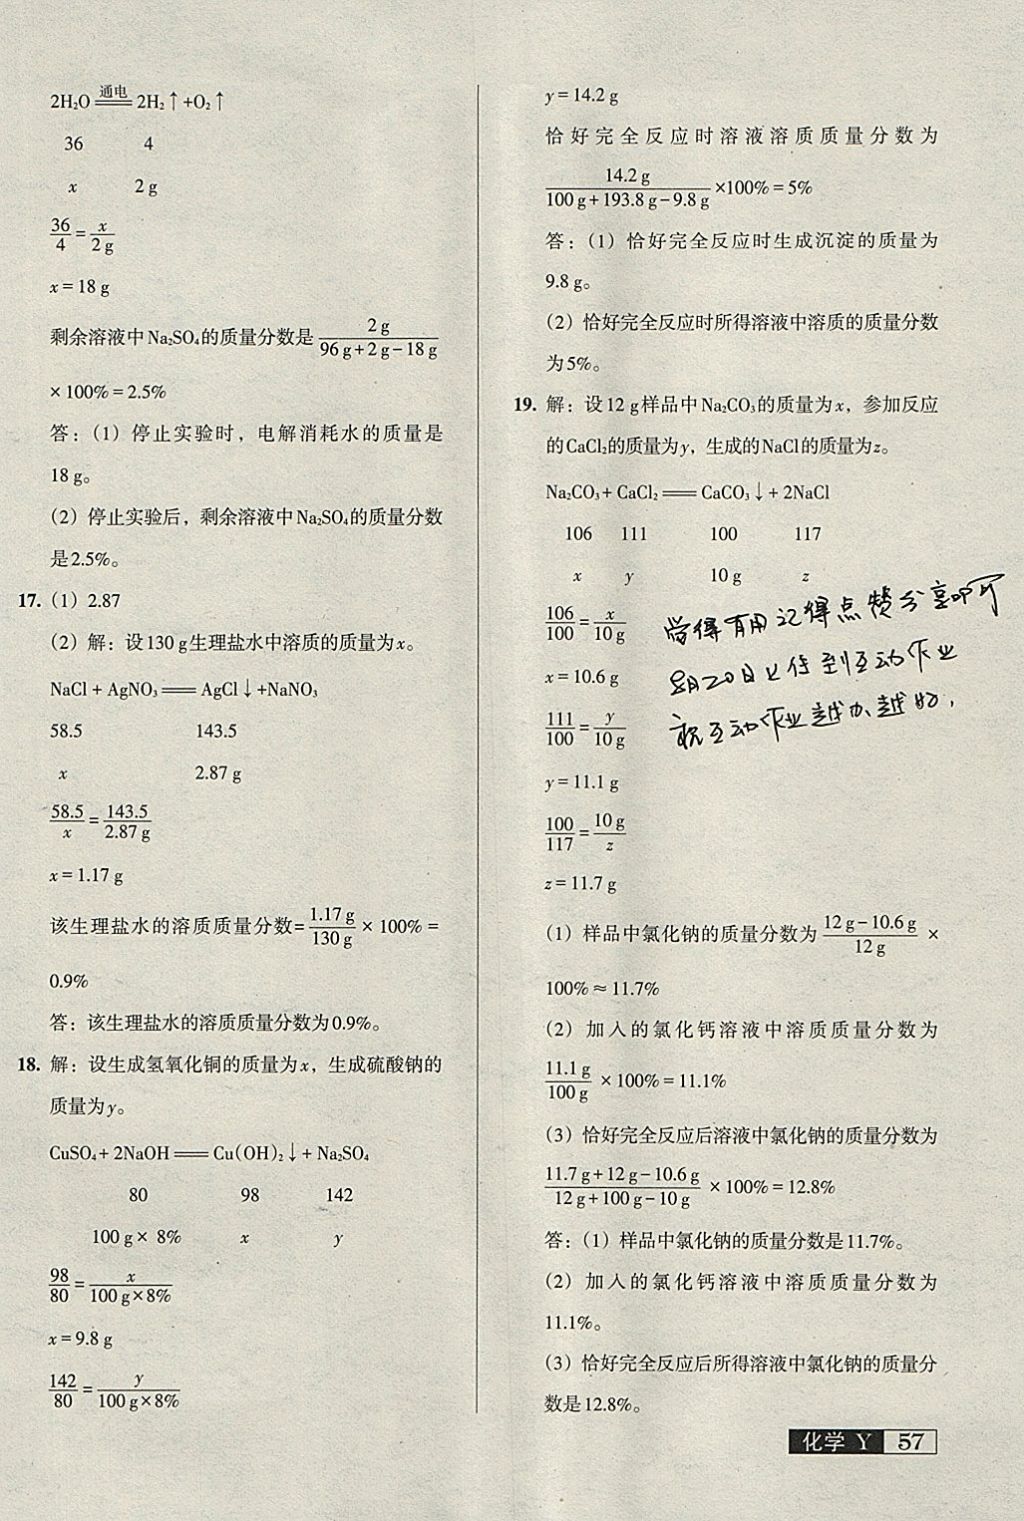 2H₂O ══通电══ 2H₂↑+O₂↑
36 4
x 2 g
36/4 = x/2 g
x = 18 g
剩余溶液中Na₂SO₄的质量分数是 2 g/(96 g+2 g-18 g)
× 100% = 2.5%
答：（1）停止实验时，电解消耗水的质量是
18 g。
（2）停止实验后，剩余溶液中Na₂SO₄的质量分数
是2.5%。
17.（1）2.87
（2）解：设130 g生理盐水中溶质的质量为x。
NaCl + AgNO₃ ══ AgCl↓+NaNO₃
58.5 143.5
x 2.87 g
58.5/x = 143.5/2.87 g
x = 1.17 g
该生理盐水的溶质质量分数= 1.17 g/130 g × 100% =
0.9%
答：该生理盐水的溶质质量分数为0.9%。
18. 解：设生成氢氧化铜的质量为x，生成硫酸钠的
质量为y。
CuSO₄+ 2NaOH ══ Cu(OH)₂↓+ Na₂SO₄
80 98 142
100 g× 8% x y
98/80 = x/(100 g×8%)
x = 9.8 g
142/80 = y/(100 g×8%)
y = 14.2 g
恰好完全反应时溶液溶质质量分数为
14.2 g/(100 g+193.8 g-9.8 g) ×100% = 5%
答：（1）恰好完全反应时生成沉淀的质量为
9.8 g。
（2）恰好完全反应时所得溶液中溶质的质量分数
为5%。
19. 解：设12 g样品中Na₂CO₃的质量为x，参加反应
的CaCl₂的质量为y，生成的NaCl的质量为z。
Na₂CO₃+ CaCl₂ ══ CaCO₃↓+ 2NaCl
106 111 100 117
x y 10 g z
106/100 = x/10 g
x = 10.6 g
111/100 = y/10 g
y = 11.1 g
100/117 = 10 g/z
z = 11.7 g
觉得有用记得点赞分享即可
月20日 到互动作业
祝互动作业越办越好，
（1）样品中氯化钠的质量分数为 (12 g-10.6 g)/12 g ×
100% ≈ 11.7%
（2）加入的氯化钙溶液中溶质质量分数为
11.1 g/100 g × 100% = 11.1%
（3）恰好完全反应后溶液中氯化钠的质量分数为
(11.7 g+12 g-10.6 g)/(12 g+100 g-10 g) × 100% = 12.8%
答：（1）样品中氯化钠的质量分数是11.7%。
（2）加入的氯化钙溶液中溶质质量分数为
11.1%。
（3）恰好完全反应后所得溶液中氯化钠的质量分
数是12.8%。
化学 Y 57